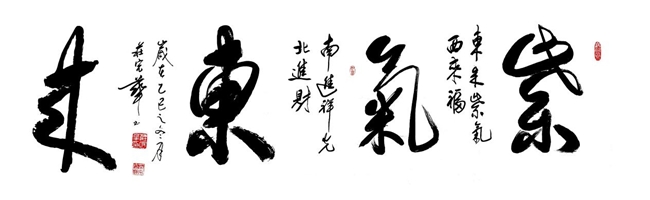 紫
東来紫氣
西來福
氣
南進祥光
北進財
東
歲在乙巳之冬月
来